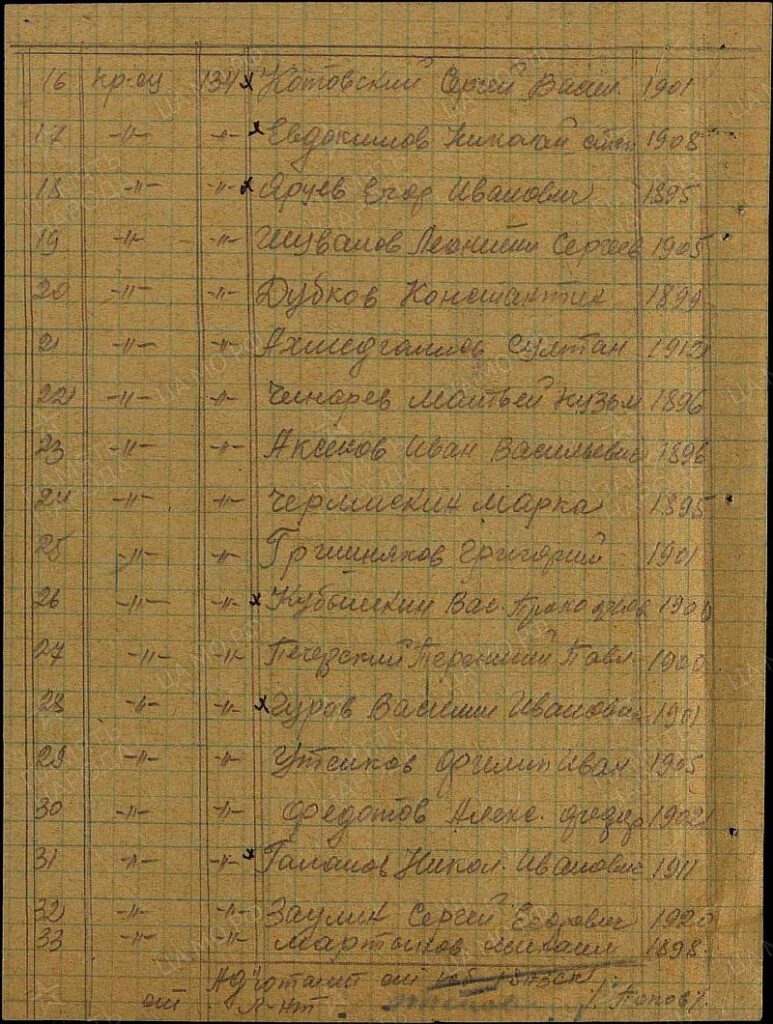 16 кр-ец 134 х Котовский Сергей Васил 1901
17 -"- -"- х Евдокимов Николай степ 1908
18 -"- -"- х Яруев Егор Иванович 1895
19 -"- -"- Шувалов Леонтий Сергеев 1905
20 -"- -"- Дубков Константин 1899
21 -"- -"- Ахмедгалиов Султан
22 -"- -"- Чинарев Матвей Кузьм 1896
23 -"- -"- Аксенов Иван Васильевич 1896
24 -"- -"- Чермискин Марка 1895
25 -"- -"- Григорий 1901
26 -"- -"- х Кубышкин Вас. 1900
27 -"- -"- Печерский Терентий Павл 1900
28 -"- -"- х Гуров Василий Иванович 1901
29 -"- -"- Утенков Филип Иван 1905
30 -"- -"- Федотов Алекс. Федор 1902
31 -"- -"- х Галанов Никол. Иванович 1911
32 -"- -"- Заулин Сергей Егорович 1920
33 -"- -"- Мартынов Михаил 1898
Ад"ютант
Л-нт /Попов/.